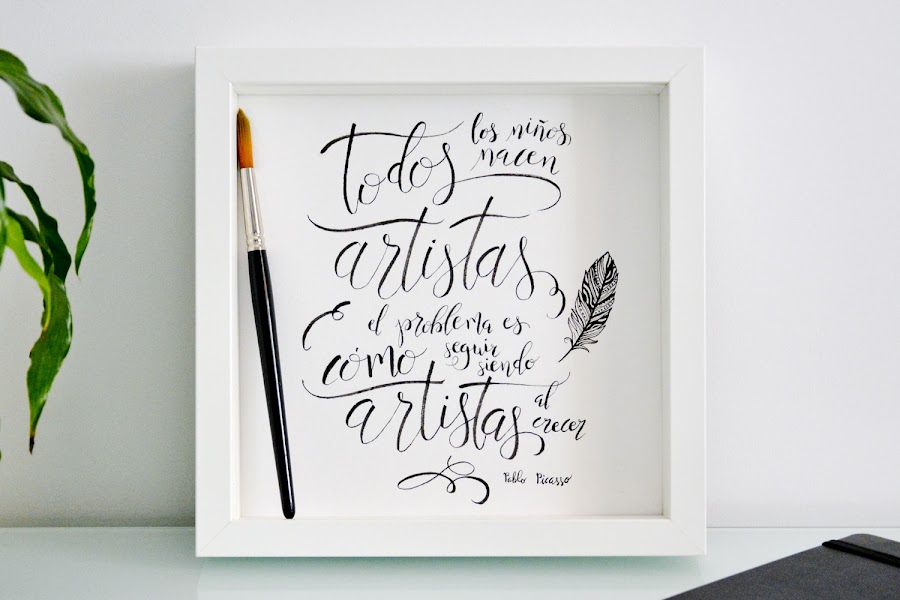 todos los niños,
nacen
artistas
el problema es
cómo seguir
siendo
artistas al
crecer
Pablo Picasso